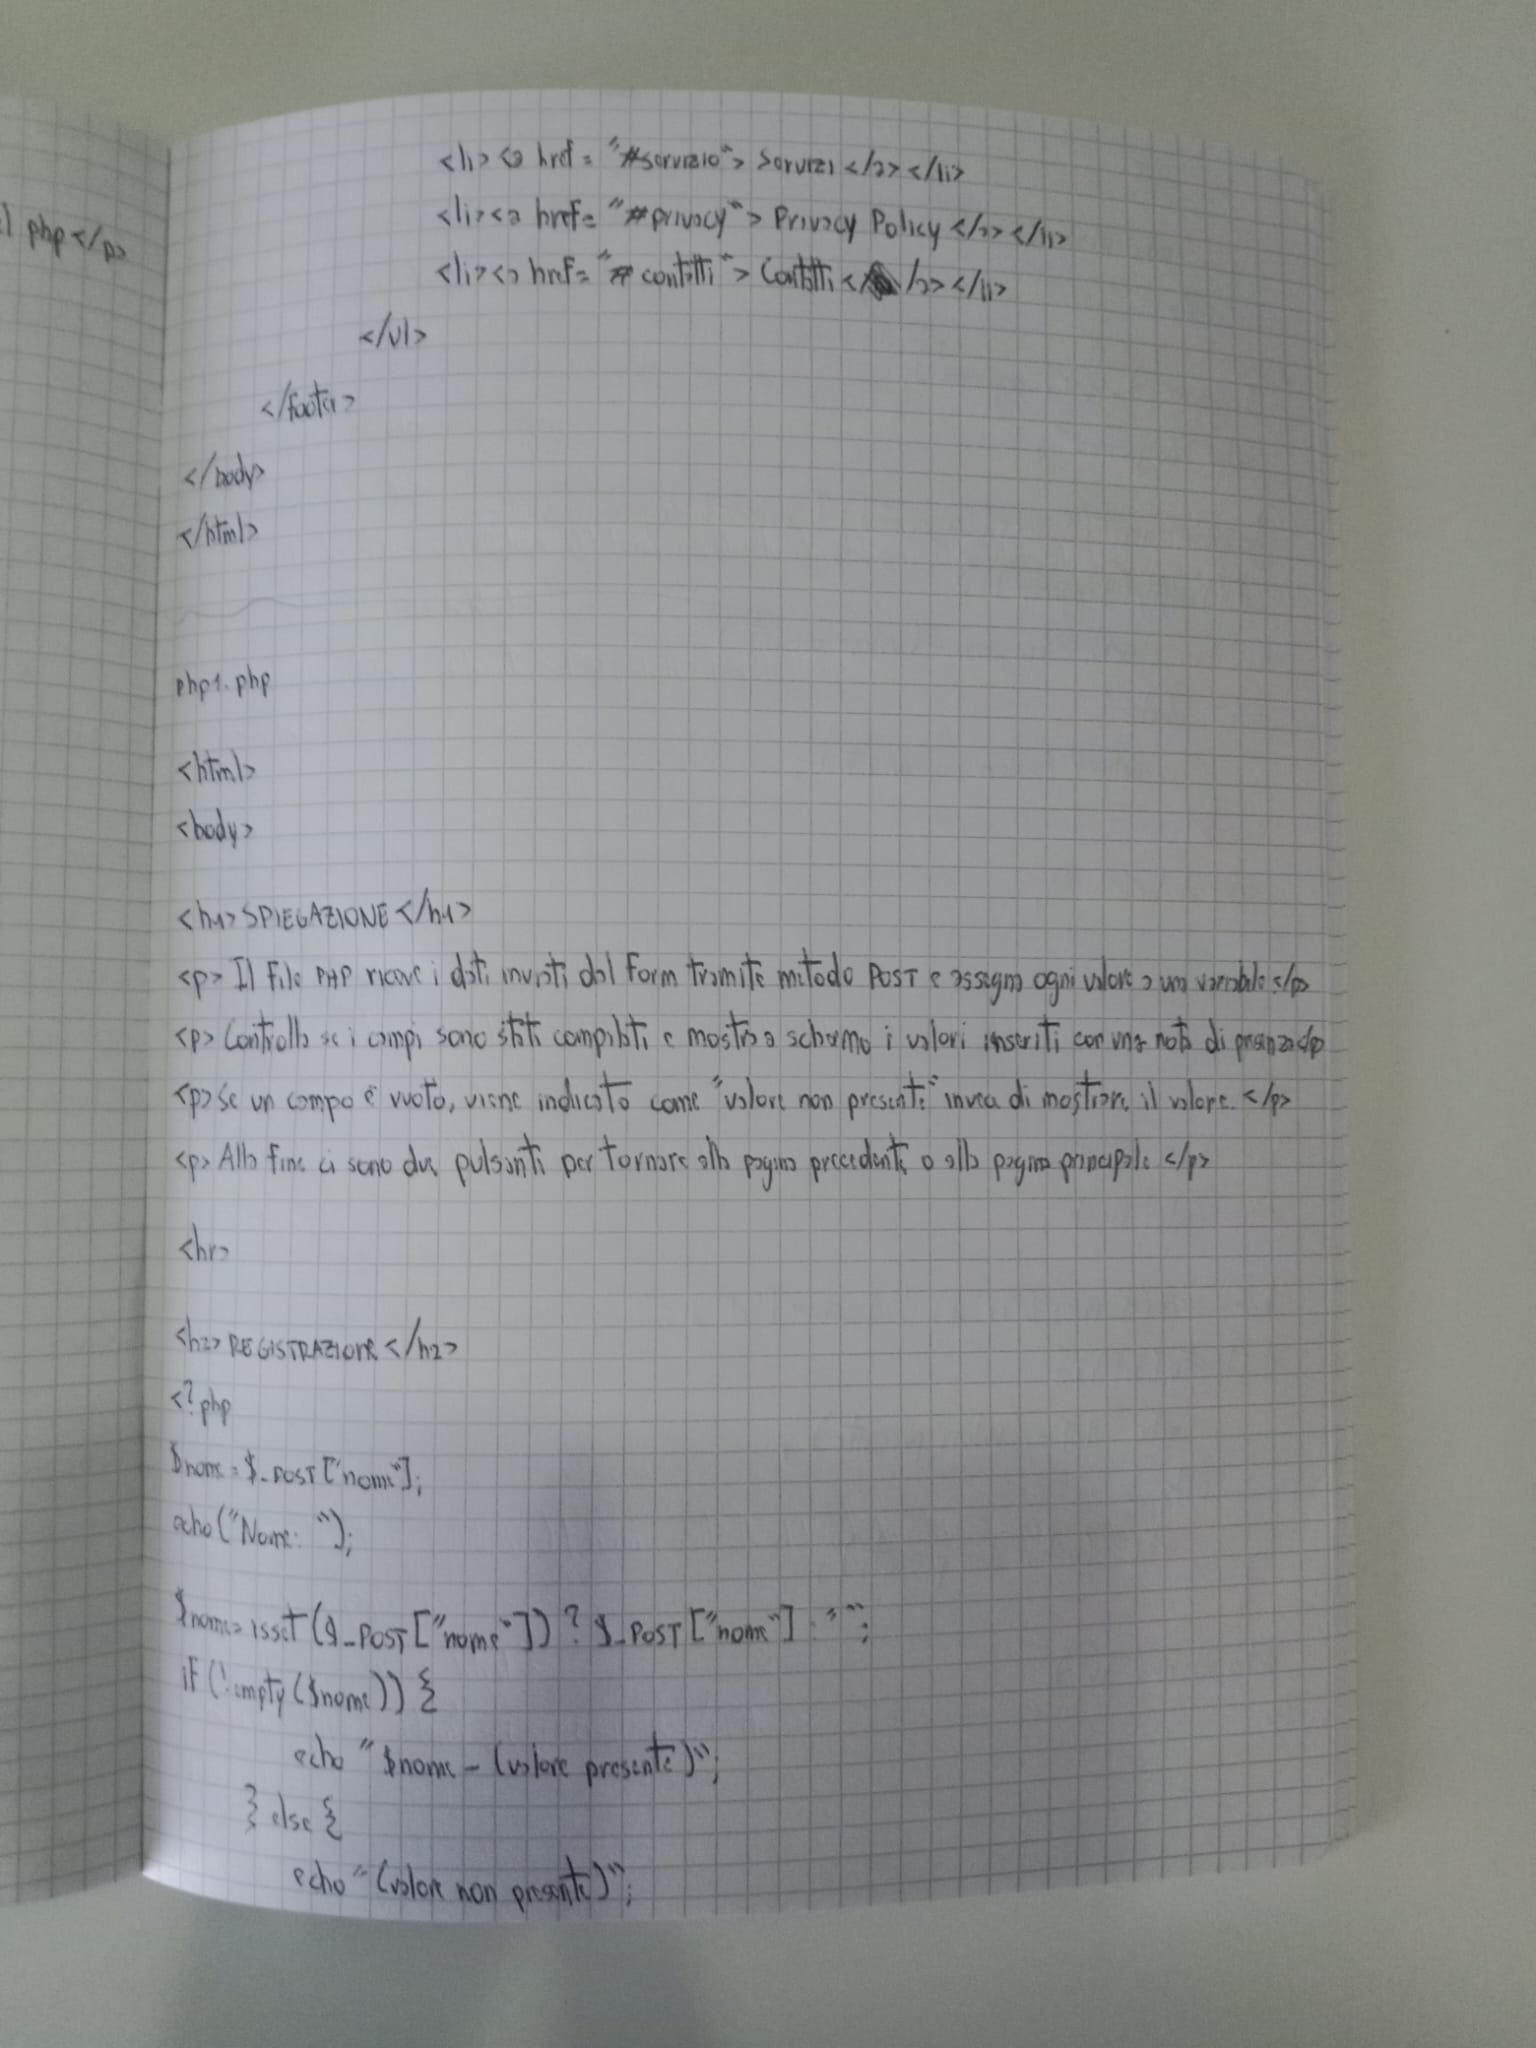 l php</p>
<li><a href="#servizio">Servizi</a></li>
<li><a href="#privacy">Privacy Policy</a></li>
<li><a href="#contatti">Contatti</a></li>
</ul>
</footer>
</body>
</html>
php1.php
<html>
<body>
<h1>SPIEGAZIONE</h1>
<p> Il file PHP riceve i dati inviati dal form tramite metodo POST e assegna ogni valore a una variabile </p>
<p> Controlla se i campi sono stati compilati e mostra a schermo i valori inseriti con una nota di presenza </p>
<p> Se un campo è vuoto, viene indicato come "valore non presente" invece di mostrare il valore. </p>
<p> Alla fine ci sono due pulsanti per tornare alla pagina precedente o alla pagina principale </p>
<hr>
<h2> REGISTRAZIONE </h2>
<?php
$nome = $_POST["nome"];
echo("Nome: ");
$nome = isset($_POST["nome"]) ? $_POST["nome"] : "";
if (!empty($nome)) {
echo "$nome - (valore presente)";
} else {
echo "(valore non presente)";